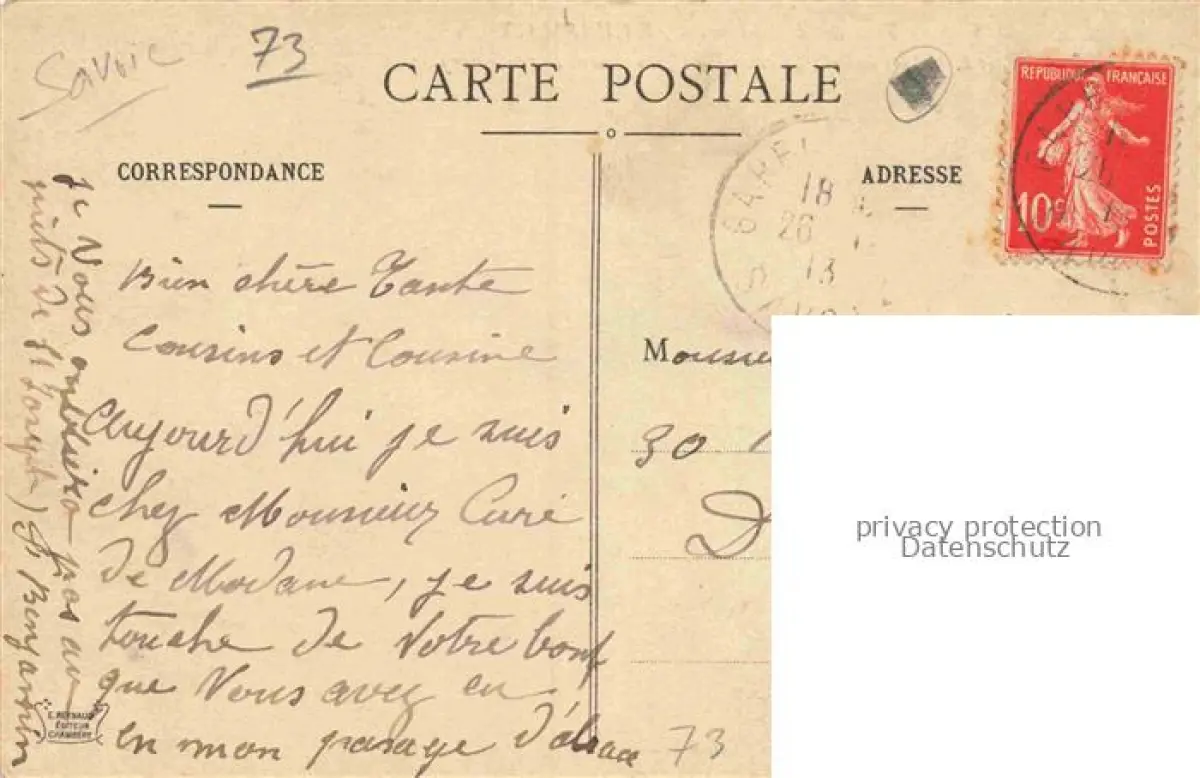 Savoie
73
CARTE POSTALE
CORRESPONDANCE
ADRESSE
REPUBLIQUE FRANÇAISE
10c
POSTES
18
26
13
Bien chère Tante
Cousins et Cousine
Aujourd'hui je suis
chez Monsieur Curé
de Modane, je suis
touche de Votre bont
que Vous avez eu
en mon passage d'alsace
Je Vous oublierai pas au
pieds de St Joseph) fr Benjamin
Monsieu
30
D
privacy protection
Datenschutz
E. REYNAUD
ÉDITEUR
CHAMBÉRY
73